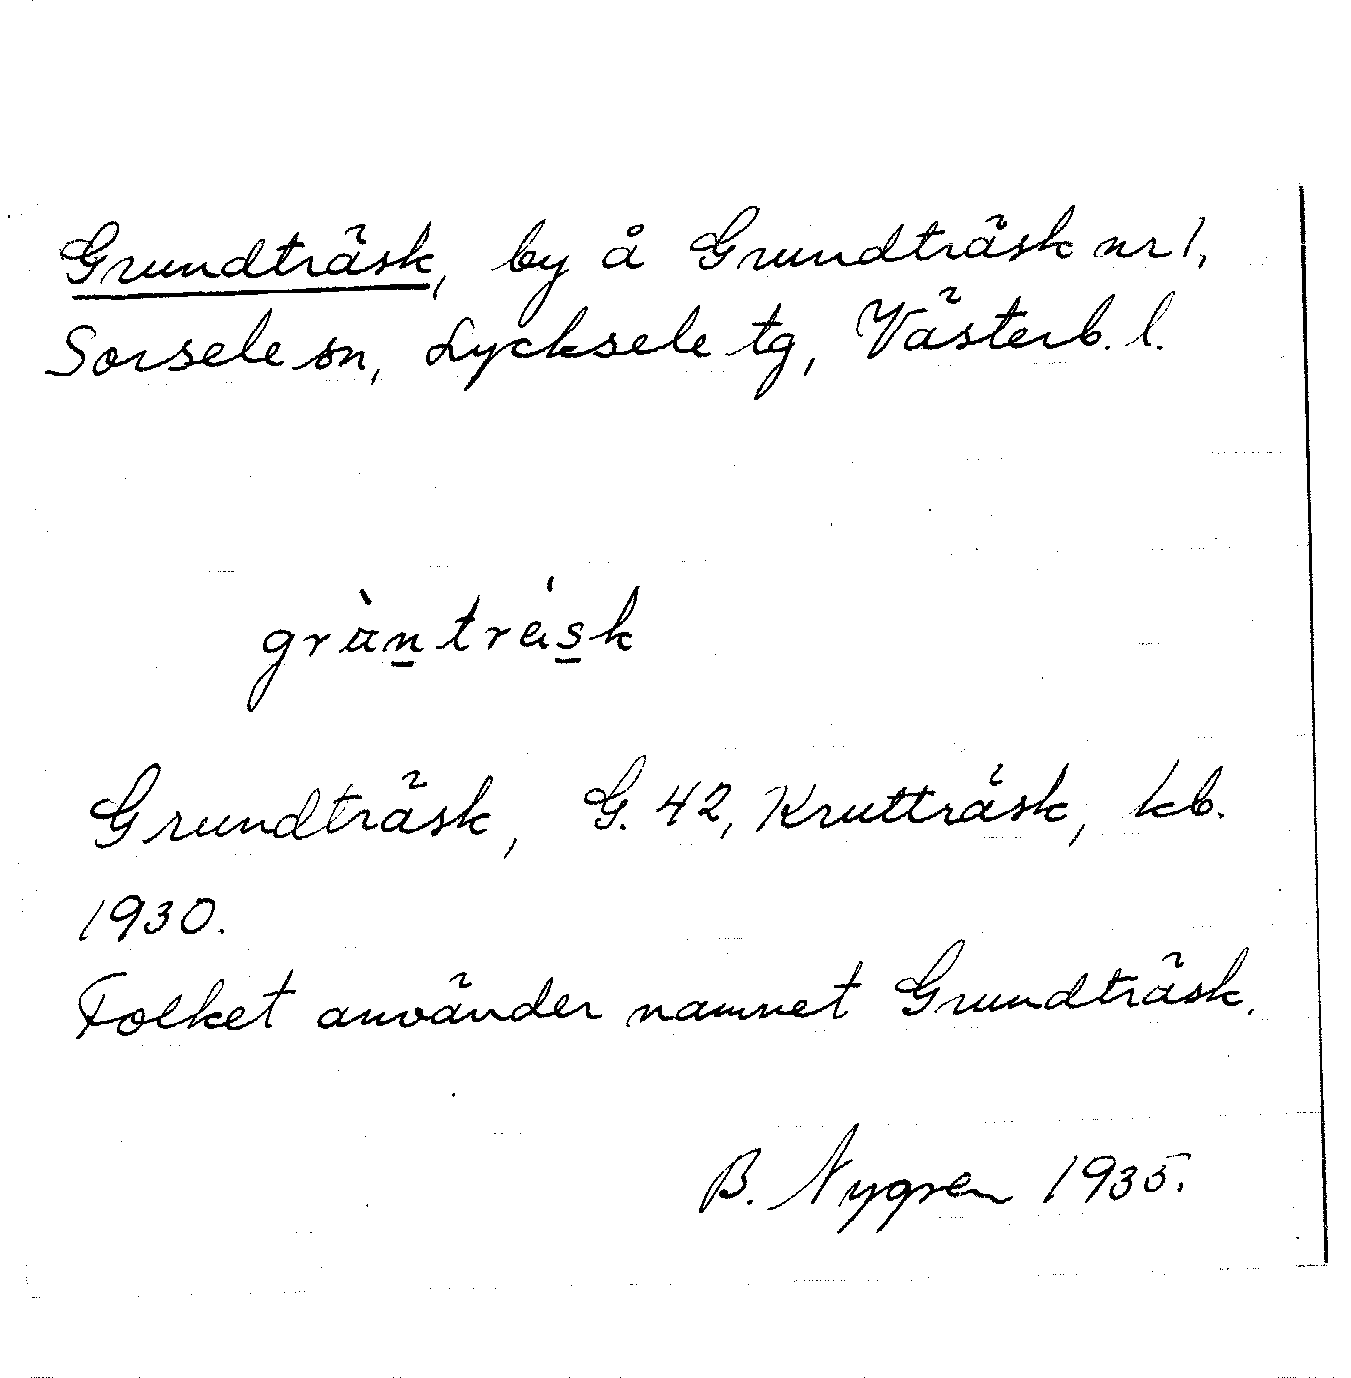 Grundträsk, by å Grundträsk nr 1,
Sorsele sn, Lycksele tg, Västerb. l.
Grundträsk, G. 42, Krutträsk, kb.
1930.
Folket använder namnet Grundträsk.
B. Nygren 1935.